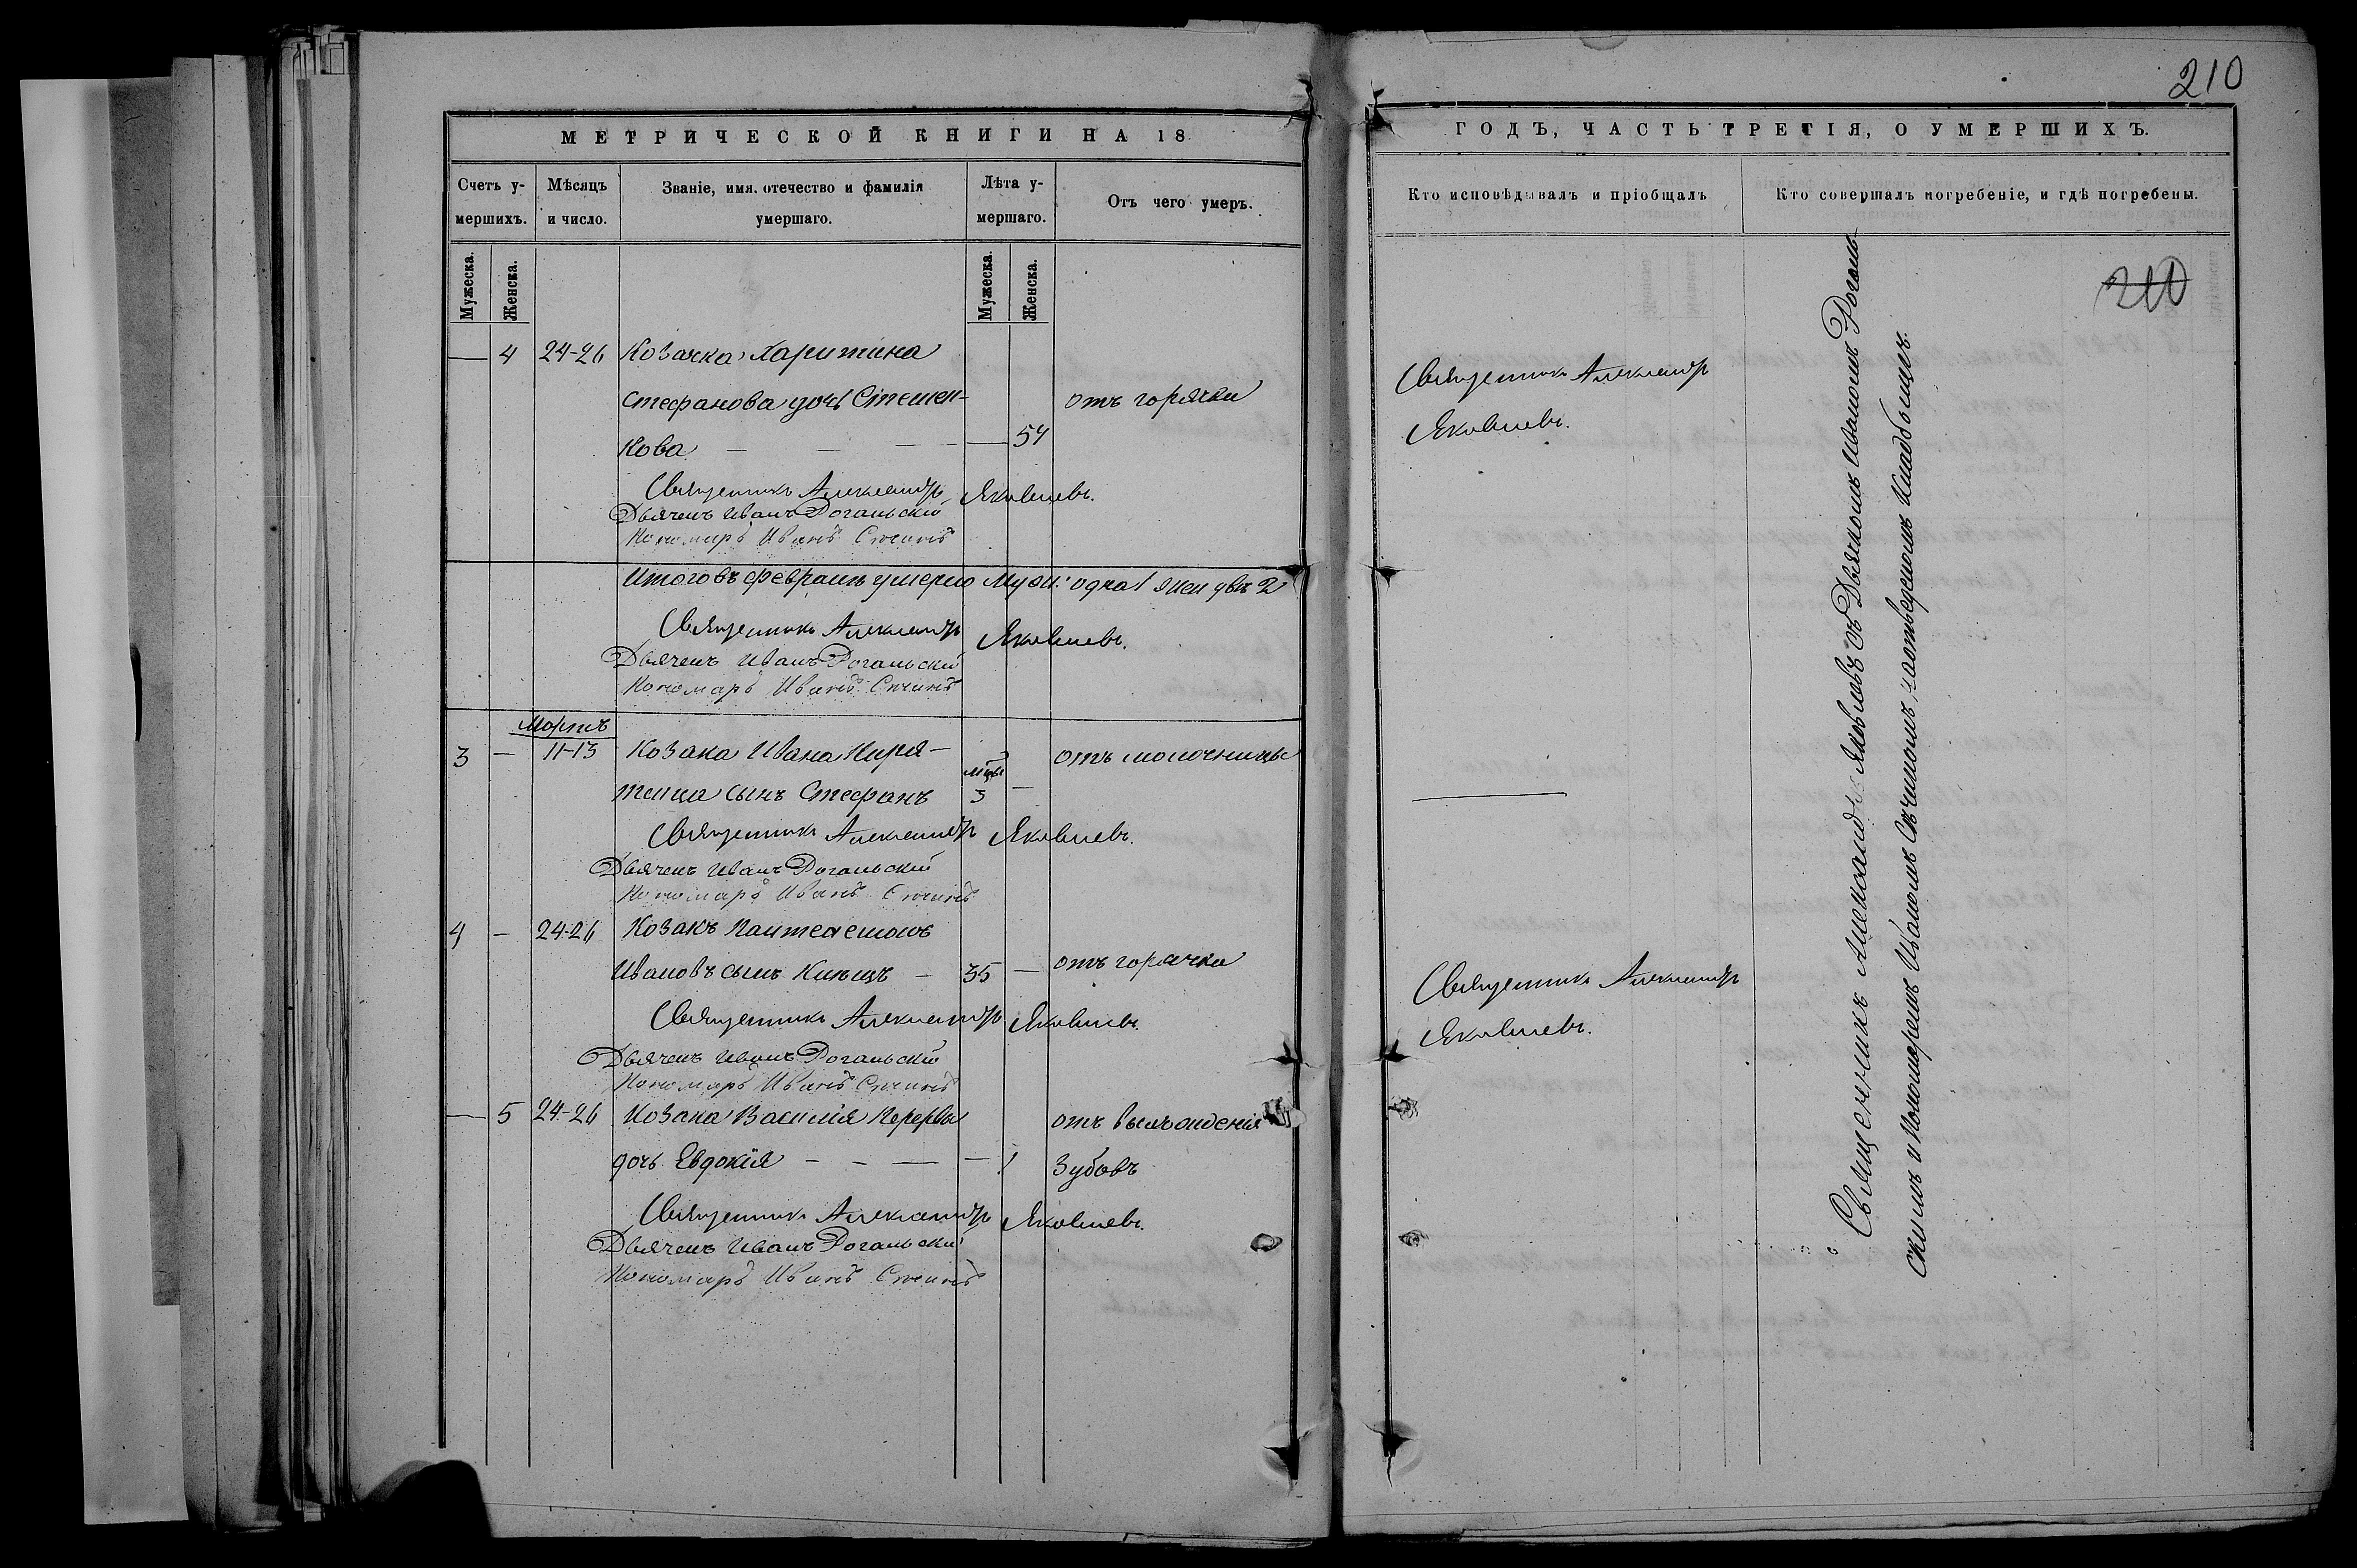 МЕТРИЧЕСКОЙ КНИГИ НА 18
Счетъ у-
мершихъ.
Мѣсяцъ
и число.
Званіе, имя, отечество и фамилія
умершаго.
Лѣта у-
мершаго.
Отъ чего умеръ.
Мужеска.
Женска.
Мужеска.
Женска.
— 4 24-26 Козачка Харитина
Стефанова дочь Стешен- отъ горячки
кова — — — 54
Священникъ Александръ Яковлевъ.
Дьячекъ Иванъ Рогальскій
Пономарь Иванъ Сѣчинъ
Итого въ февралѣ умерло муж: одна 1 жен двѣ 2
Священникъ Александръ Яковлевъ.
Дьячекъ Иванъ Рогальскій
Пономарь Иванъ Сѣчинъ
Мартъ
3 — 11-13 Козака Ивана отъ молочницы
сынъ Стефанъ мцы 3 —
Священникъ Александръ Яковлевъ.
Дьячекъ Иванъ Рогальскій
Пономарь Иванъ Сѣчинъ
4 — 24-26 Козакъ Пантелеимонъ
Ивановъ сынъ — 35 — отъ горячки
Священникъ Александръ Яковлевъ.
Дьячекъ Иванъ Рогальскій
Пономарь Иванъ Сѣчинъ
— 5 24-26 Козака Василія Перервы отъ
дочь Евдокія — — — — 1 зубовъ
Священникъ Александръ Яковлевъ.
Дьячекъ Иванъ Рогальскій
Пономарь Иванъ Сѣчинъ
210
ГОДЪ, ЧАСТЬ ТРЕТІЯ, О УМЕРШИХЪ.
Кто исповѣдывалъ и пріобщалъ
Кто совершалъ погребеніе, и гдѣ погребены.
210
Священникъ Александръ
Яковлевъ.
Священникъ Александръ
Яковлевъ.
Священникъ Александръ Яковлевъ съ Дьячкомъ Иваномъ Рогаль-
скимъ и Пономаремъ Иваномъ Сѣчиномъ, на отведеномъ кладбищѣ.